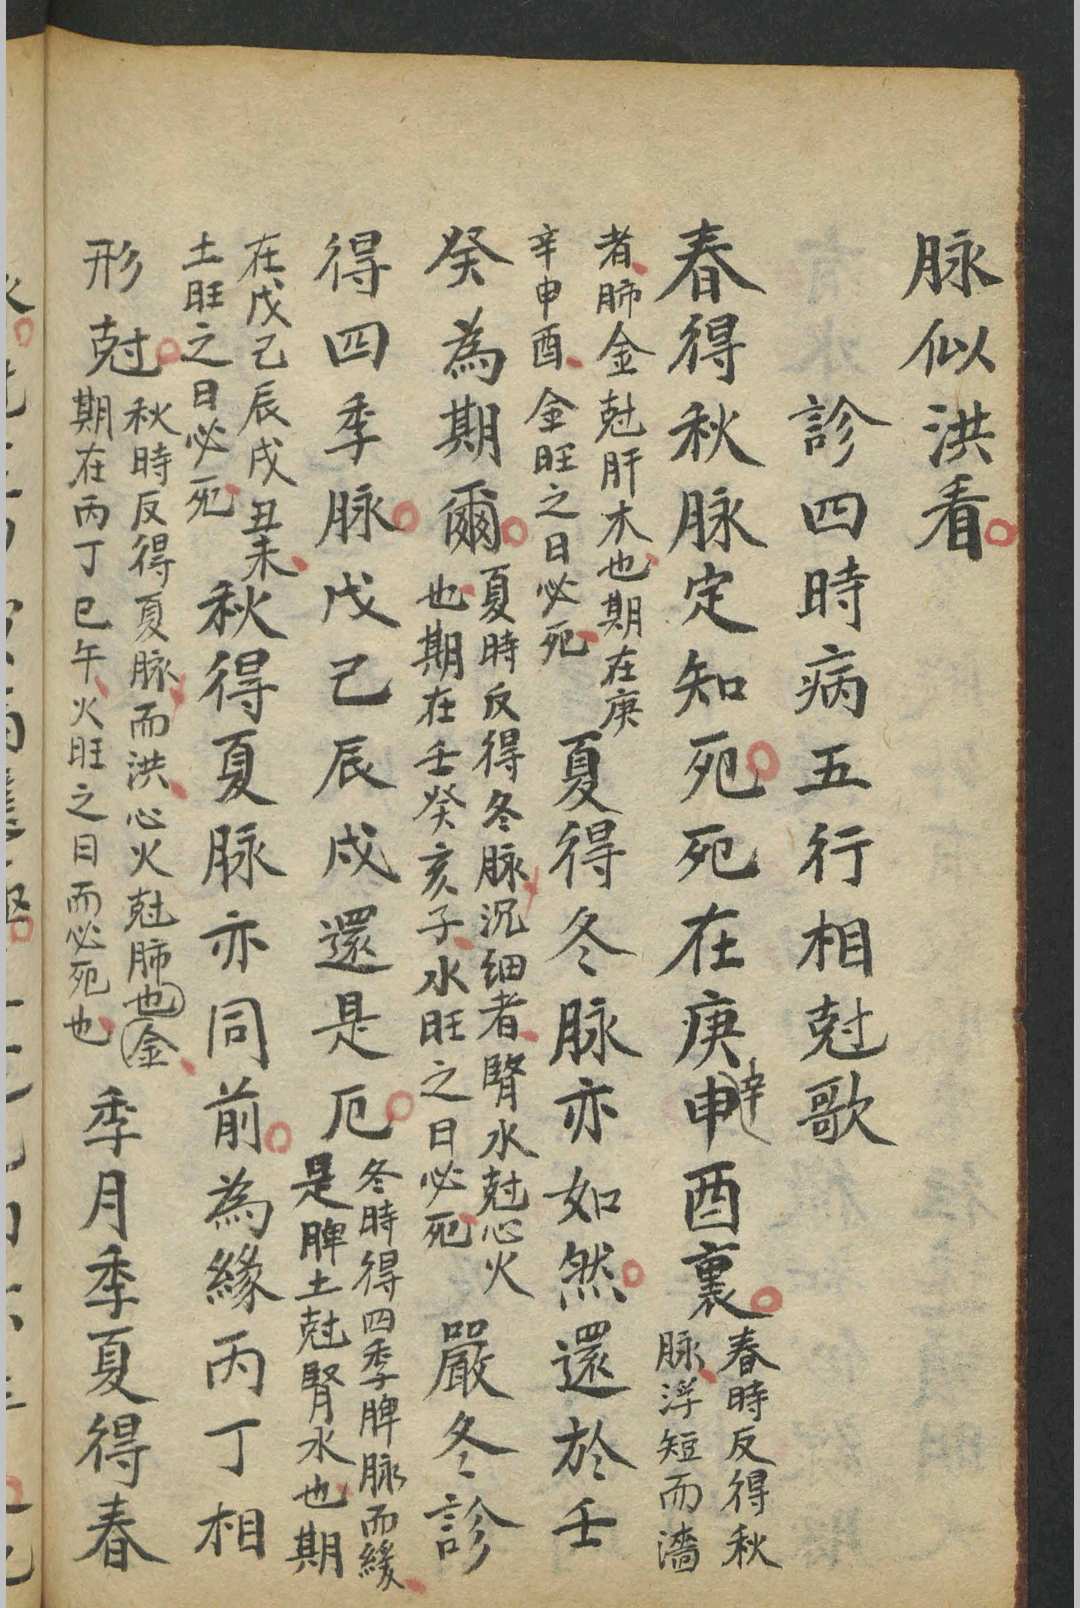 脉似洪看
診四時病五行相尅歌
春得秋脉定知死死在庚辛申酉裏
春時反得秋
脉浮短而濇
者肺金尅肝木也期在庚
辛申酉金旺之日必死
夏得冬脉亦如然還於壬
癸為期爾
夏時反得冬脉沉细者腎水尅心火
也期在壬癸亥子水旺之日必死
嚴冬診
得四季脉戊己辰戌還是厄
冬時得四季脾脉而緩
是脾土尅腎水也期
在戊己辰戌丑未
土旺之日必死
秋得夏脉亦同前為緣丙丁相
形尅
秋時反得夏脉而洪心火尅肺也金
期在丙丁巳午火旺之日而必死也
季月季夏得春